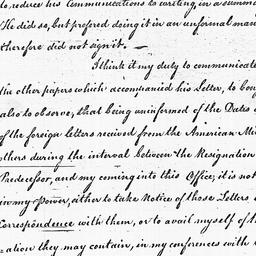 to reduce his Communications to writing, in a summa
He did so, but prefered doing it in an unformal man
therefore did not sign it. —
I think it my duty to communicate
the other papers which accompanied his Letter, to
also to observe, that being uninformed of the Dates
of the foreign letters received from the American Mi
others during the interval between the Resignation
Predecessor, and my coming into this Office; it is not
in my power, either to take Notice of those Letters
Correspondence with them, or to avail myself of th
-ation they may contain, in my conferences with